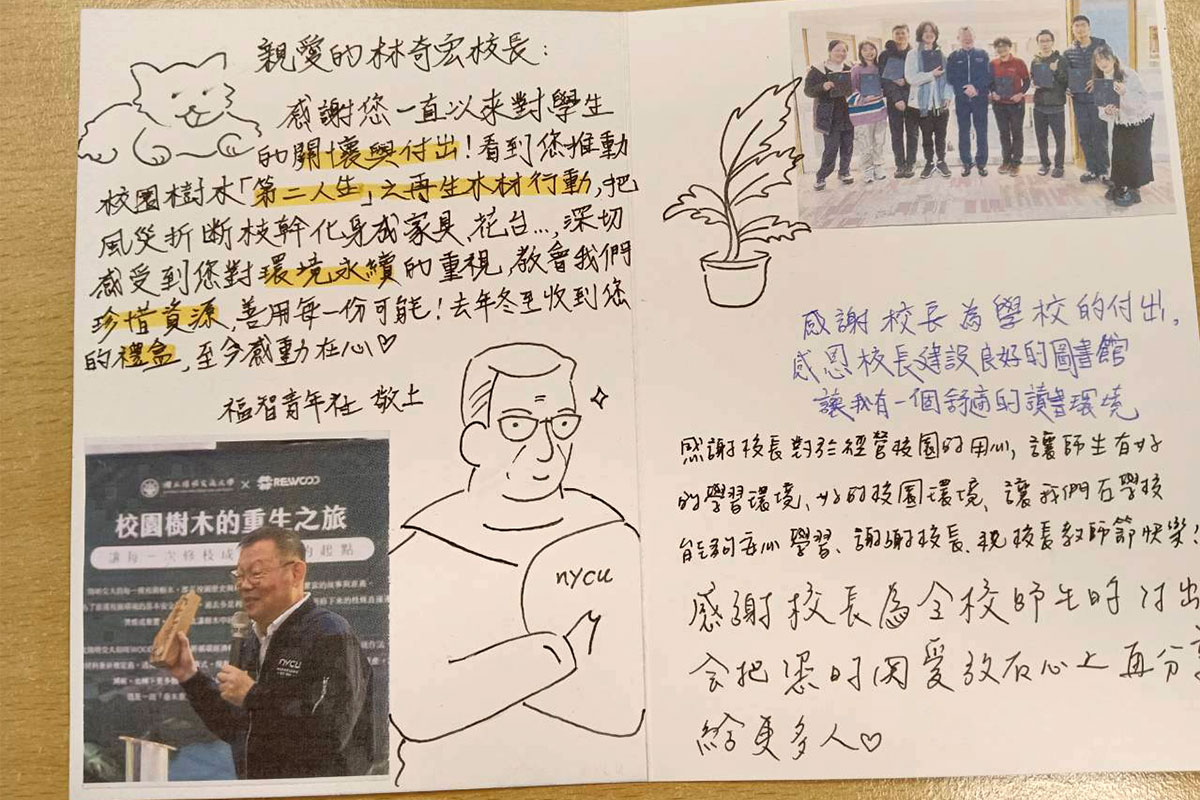 親愛的林奇宏校長:
感謝您一直以來對學生
的關懷與付出!看到您推動
校園樹木「第二人生」之再生木材行動,把
風災折斷枝幹化身成家具、花台...,深切
感受到您對環境永續的重視,教會我們
珍惜資源,善用每一份可能!去年冬至收到您
的禮盒,至今感動在心♡
福智青年社 敬上
國立陽明交通大學 × REWOOD
校園樹木的重生之旅
讓每一次修枝成 的起點
nycu
nycu
感謝校長為學校的付出,
感恩校長建設良好的圖書館
讓我有一個舒適的讀書環境
感謝校長對於經營校園的用心,讓師生有好
的學習環境、好的校園環境、讓我們在學校
能夠安心學習、謝謝校長、祝校長教師節快樂!
感謝校長為全校師生的付出
會把您的關愛放在心上再分享
給更多人♡